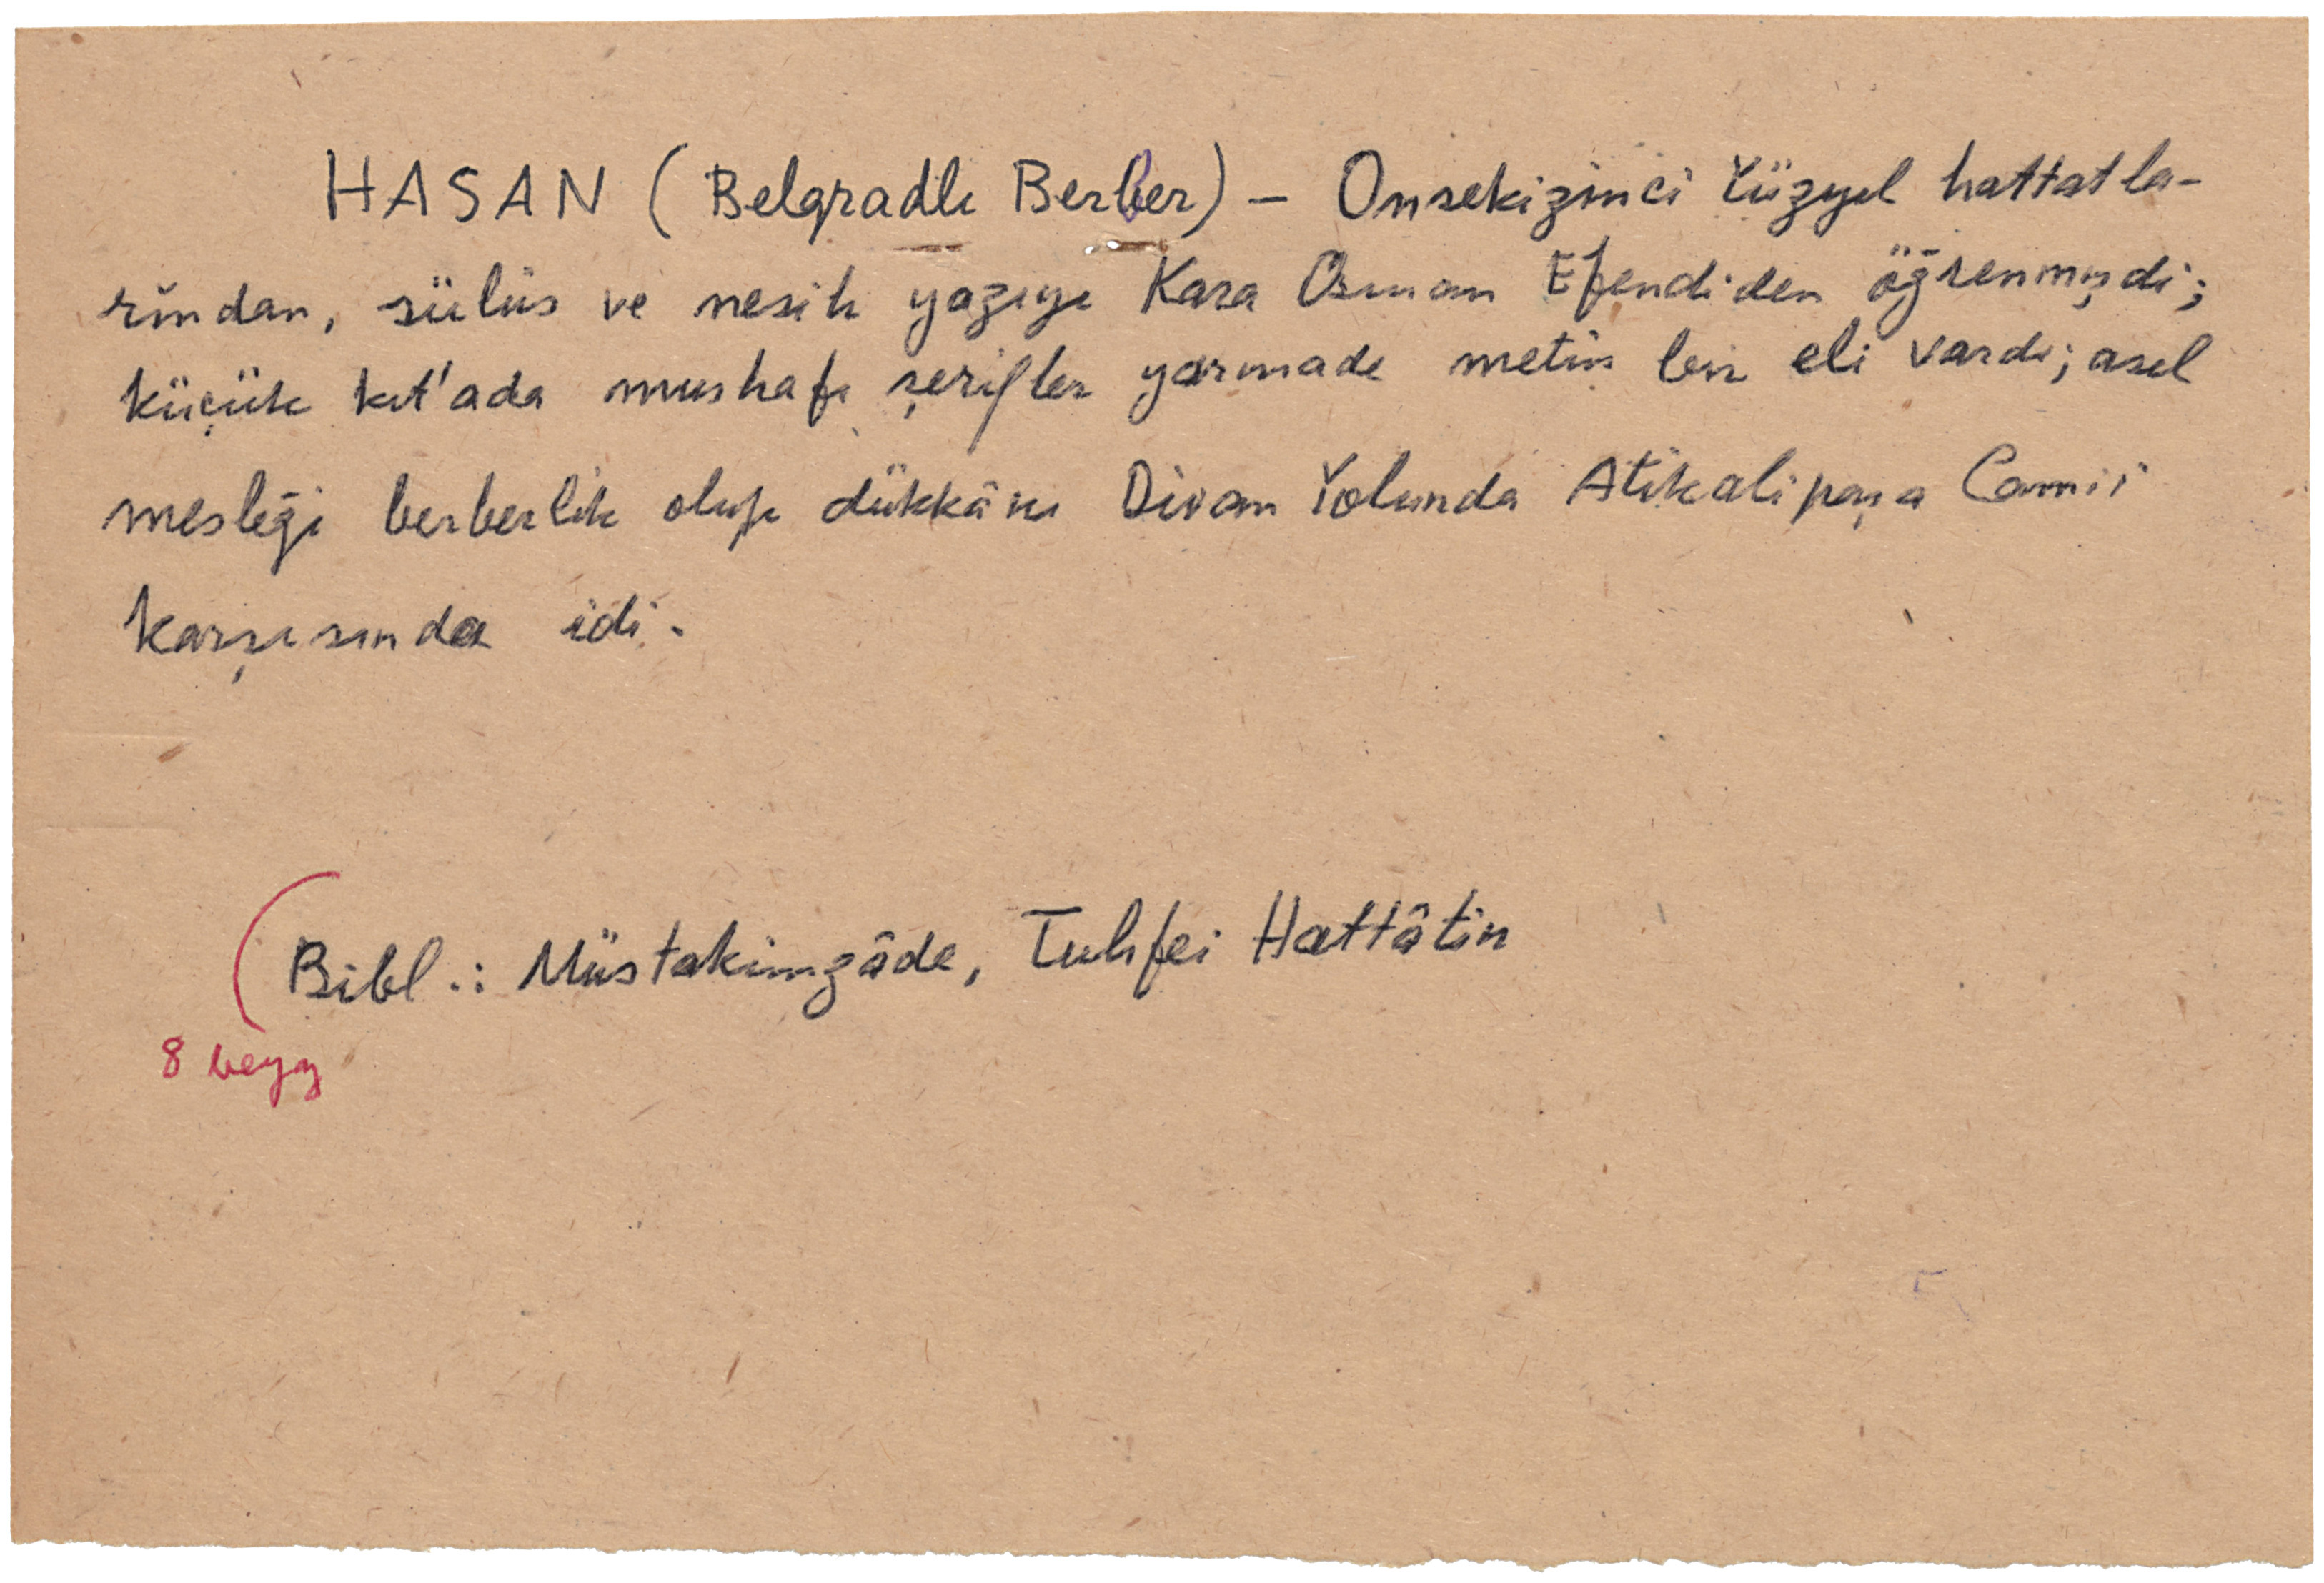 HASAN (Belgradlı Berber) – Onsekizinci Yüzyıl hattatla-
rından, sülüs ve nesih yazıyı Kara Osman Efendiden öğrenmişdi;
küçük kıt'ada mushafı şerifler yazmada metin bir eli vardı; asıl
mesleği berberlik olup dükkânı Divan Yolunda Atikalipaşa Camii
karşısında idi.
(Bibl.: Müstakimzâde, Tuhfei Hattâtin
8 beyaz